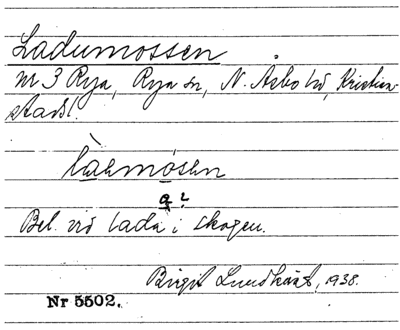 Ladumossen
nr 3 Rya, Rya sn, N. Åsbo hd, Kristian-
stads l.
làemósen
a ?
Bel. vid lada i skogen.
Birgit Lundkvist, 1938.
Nr 5502.